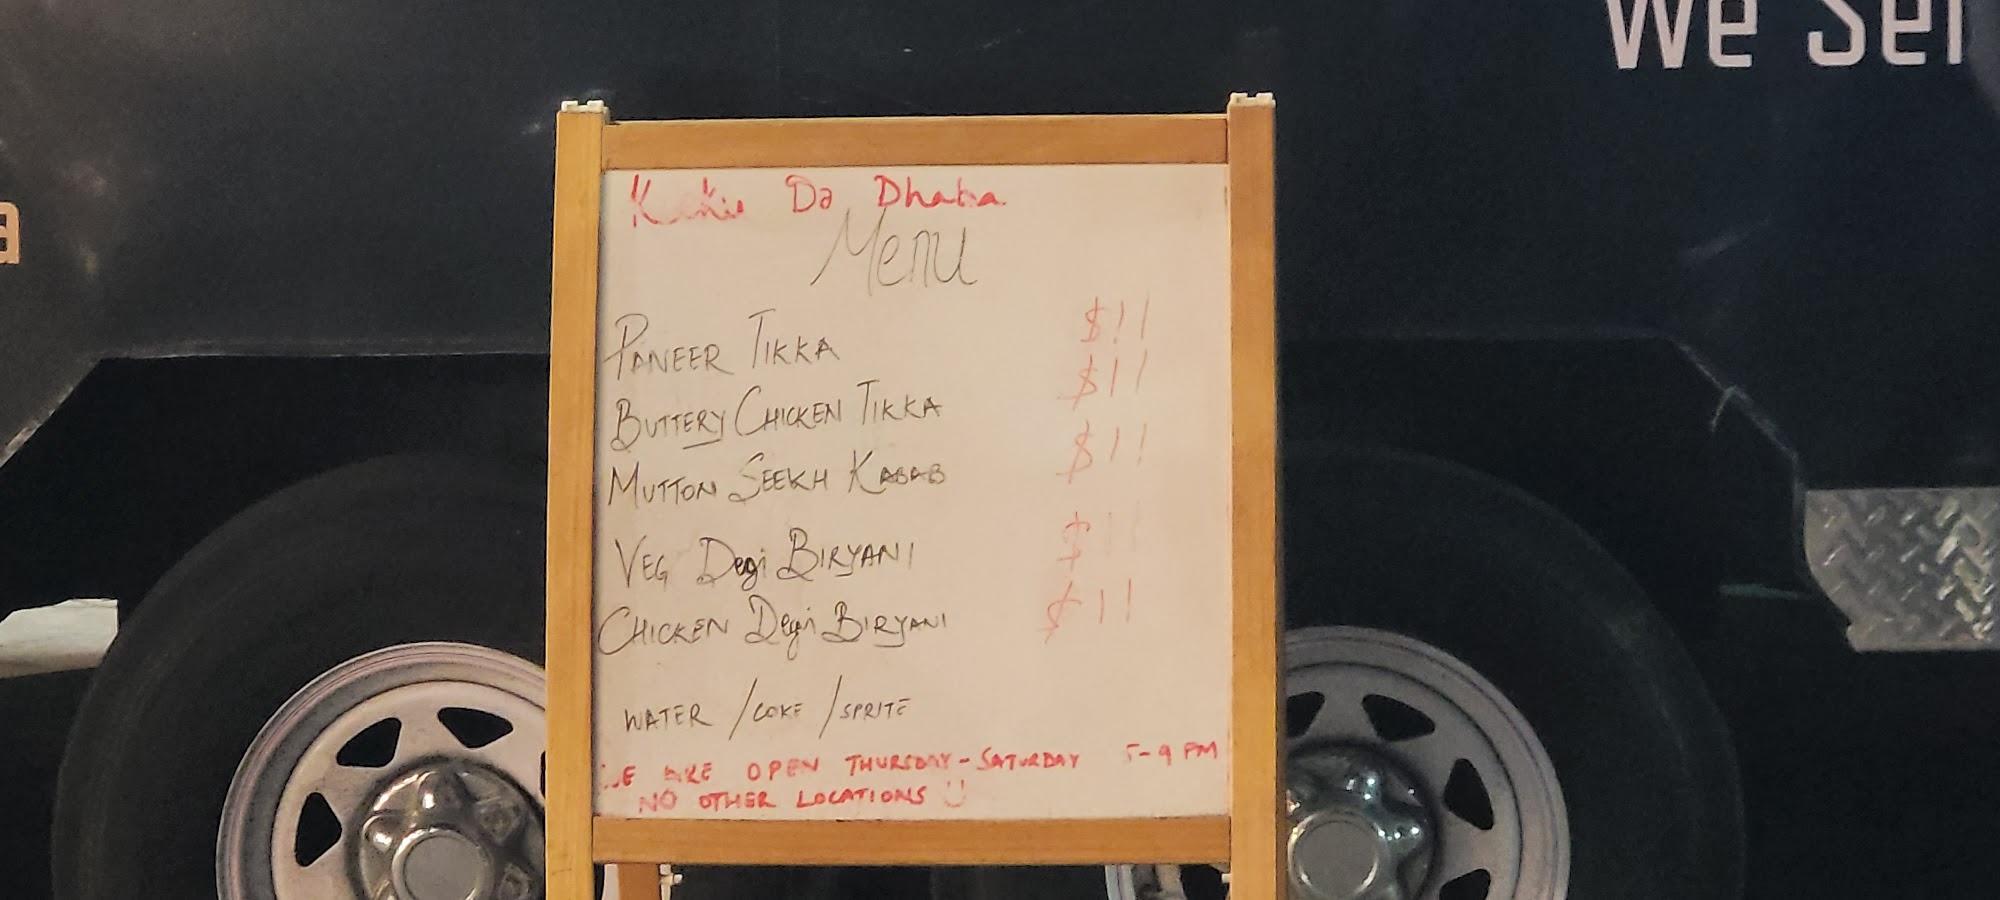 We Sel
a
Da Dhaba
Menu
PANEER TIKKA $11
BUTTERY CHICKEN TIKKA $11
MUTTON SEEKH KABAB $11
VEG Degi BIRYANI $11
CHICKEN Degi BIRYANI $11
WATER /COKE /SPRITE
WE ARE OPEN THURSDAY-SATURDAY 5-9 PM
NO OTHER LOCATIONS